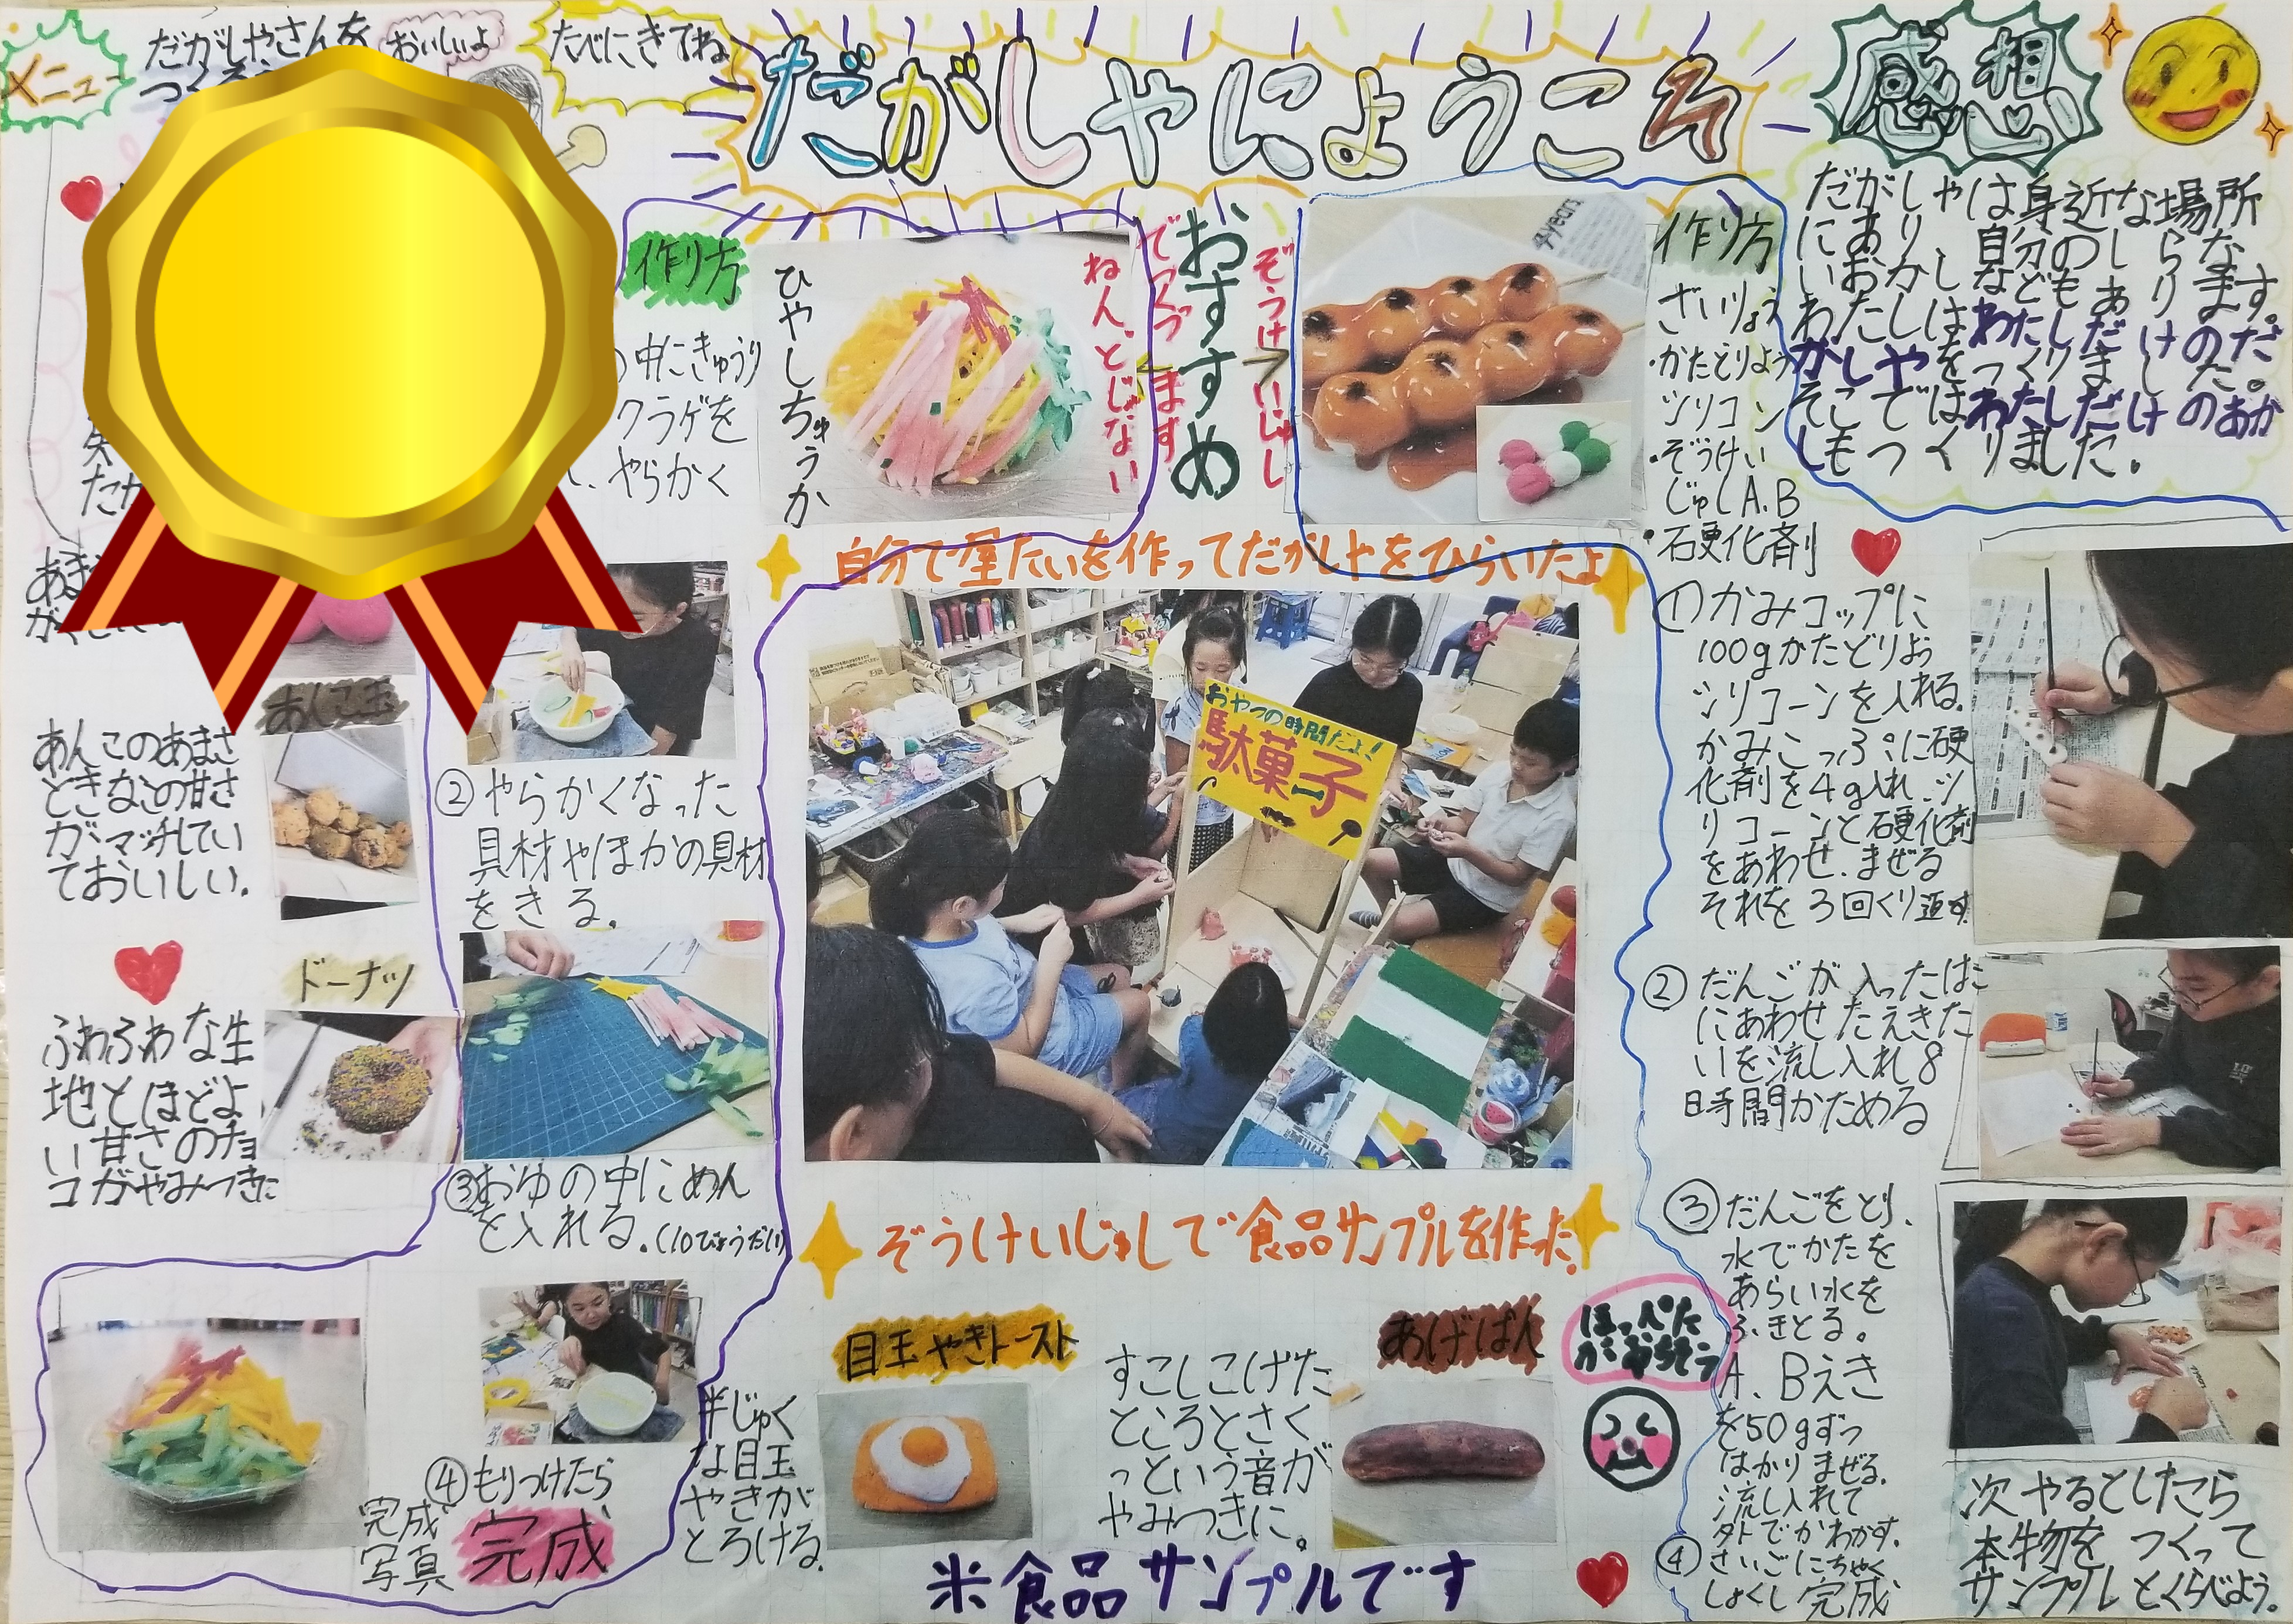 メニュー
だがしやさんを
おいしいよ
たべにきてね
だがしゃにようこそ
感想
だがしゃは身近な場所
にあり、自分のしらな
いおかしなどもあります。
わたしはわたしだけのだ
がしやをつくりました。
そこではわたしだけのおか
しもつくりました。
作り方
中にきゅうり
クラゲを
やらかく
ひやしちゅうか
ねん。どじない
でつくづ
ます
おすすめ
ぞうけいじゅし
4years
作り方
ざいりょう
・かたどりよう
シリコン
・ぞうけい
じゅしA.B
・石硬化剤
自分で屋たいを作ってだがしやをひらいたよ
おやつの時間だよ!
駄菓子
ぞうけいじゅしで食品サンプルを作った。
あんこ玉
あんこのあまさ
ときなこの甘さ
がマッチしてい
ておいしい。
ドーナツ
ふわふわな生
地とほどよ
い甘さのチョ
コがやみつきに
②やらかくなった
具材やほかの具材
をきる。
③おゆの中にめん
を入れる。(10びょうだい)
④もりつけたら
完成
完成
写真
目玉やきトースト
半じゅく
な目玉
やきが
とろける。
あげぱん
すこしこげた
ところとさく
っという音が
やみつきに。
ほっぺた
がおちそう
米食品サンプルです
①かみコップに
100gかたどりよう
シリコーンを入れる。
かみこっぷに硬
化剤を4g入れ、シ
リコーンと硬化剤
をあわせ、まぜる
それを3回くり返す。
②だんごが入ったはこ
にあわせたえきた
いを流し入れ8
時間かためる
③だんごをとり、
水でかたを
あらい水を
ふきとる。
A、Bえき
を50gずつ
はかりまぜる。
流し入れて
外でかわかす。
④さいごにちゃく
しょくし完成
次やるとしたら
本物をつくって
サンプルとくらべよう。